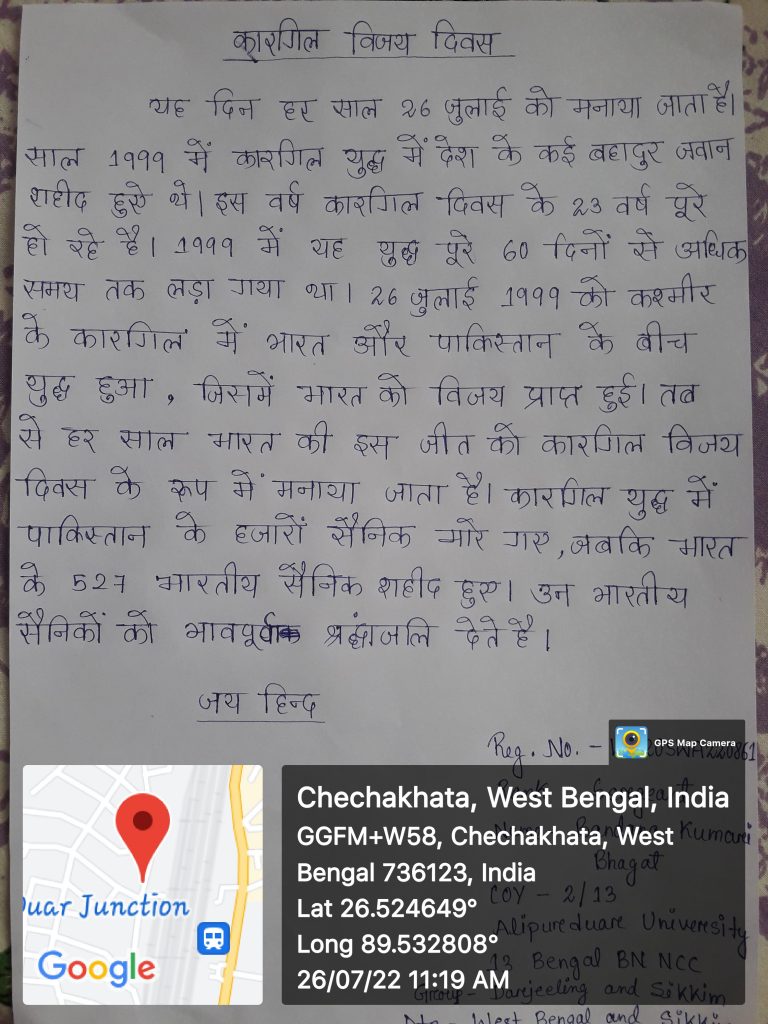 कारगिल विजय दिवस
यह दिन हर साल 26 जुलाई को मनाया जाता है।
साल 1999 में कारगिल युद्ध में देश के कई बहादुर जवान
शहीद हुऐ थे। इस वर्ष कारगिल दिवस के 23 वर्ष पूरे
हो रहे है। 1999 में यह युद्ध पूरे 60 दिनों से अधिक
समय तक लड़ा गया था। 26 जुलाई 1999 को कश्मीर
के कारगिल में भारत और पाकिस्तान के बीच
युद्ध हुआ, जिसमें भारत को विजय प्राप्त हुई। तब
से हर साल भारत की इस जीत को कारगिल विजय
दिवस के रूप में मनाया जाता है। कारगिल युद्ध में
पाकिस्तान के हजारों सैनिक मारे गए, जबकि भारत
के 527 भारतीय सैनिक शहीद हुए। उन भारतीय
सैनिकों को भावपूर्वक श्रद्धांजलि देते है।
जय हिन्द
Reg. No. -
GPS Map Camera
Kumari
Bhagat
COY - 2/13
Alipurduare University
13 Bengal BN NCC
Group - Darjeeling and Sikkim
West Bengal and Sikki
Duar Junction
Google
Chechakhata, West Bengal, India
GGFM+W58, Chechakhata, West
Bengal 736123, India
Lat 26.524649°
Long 89.532808°
26/07/22 11:19 AM